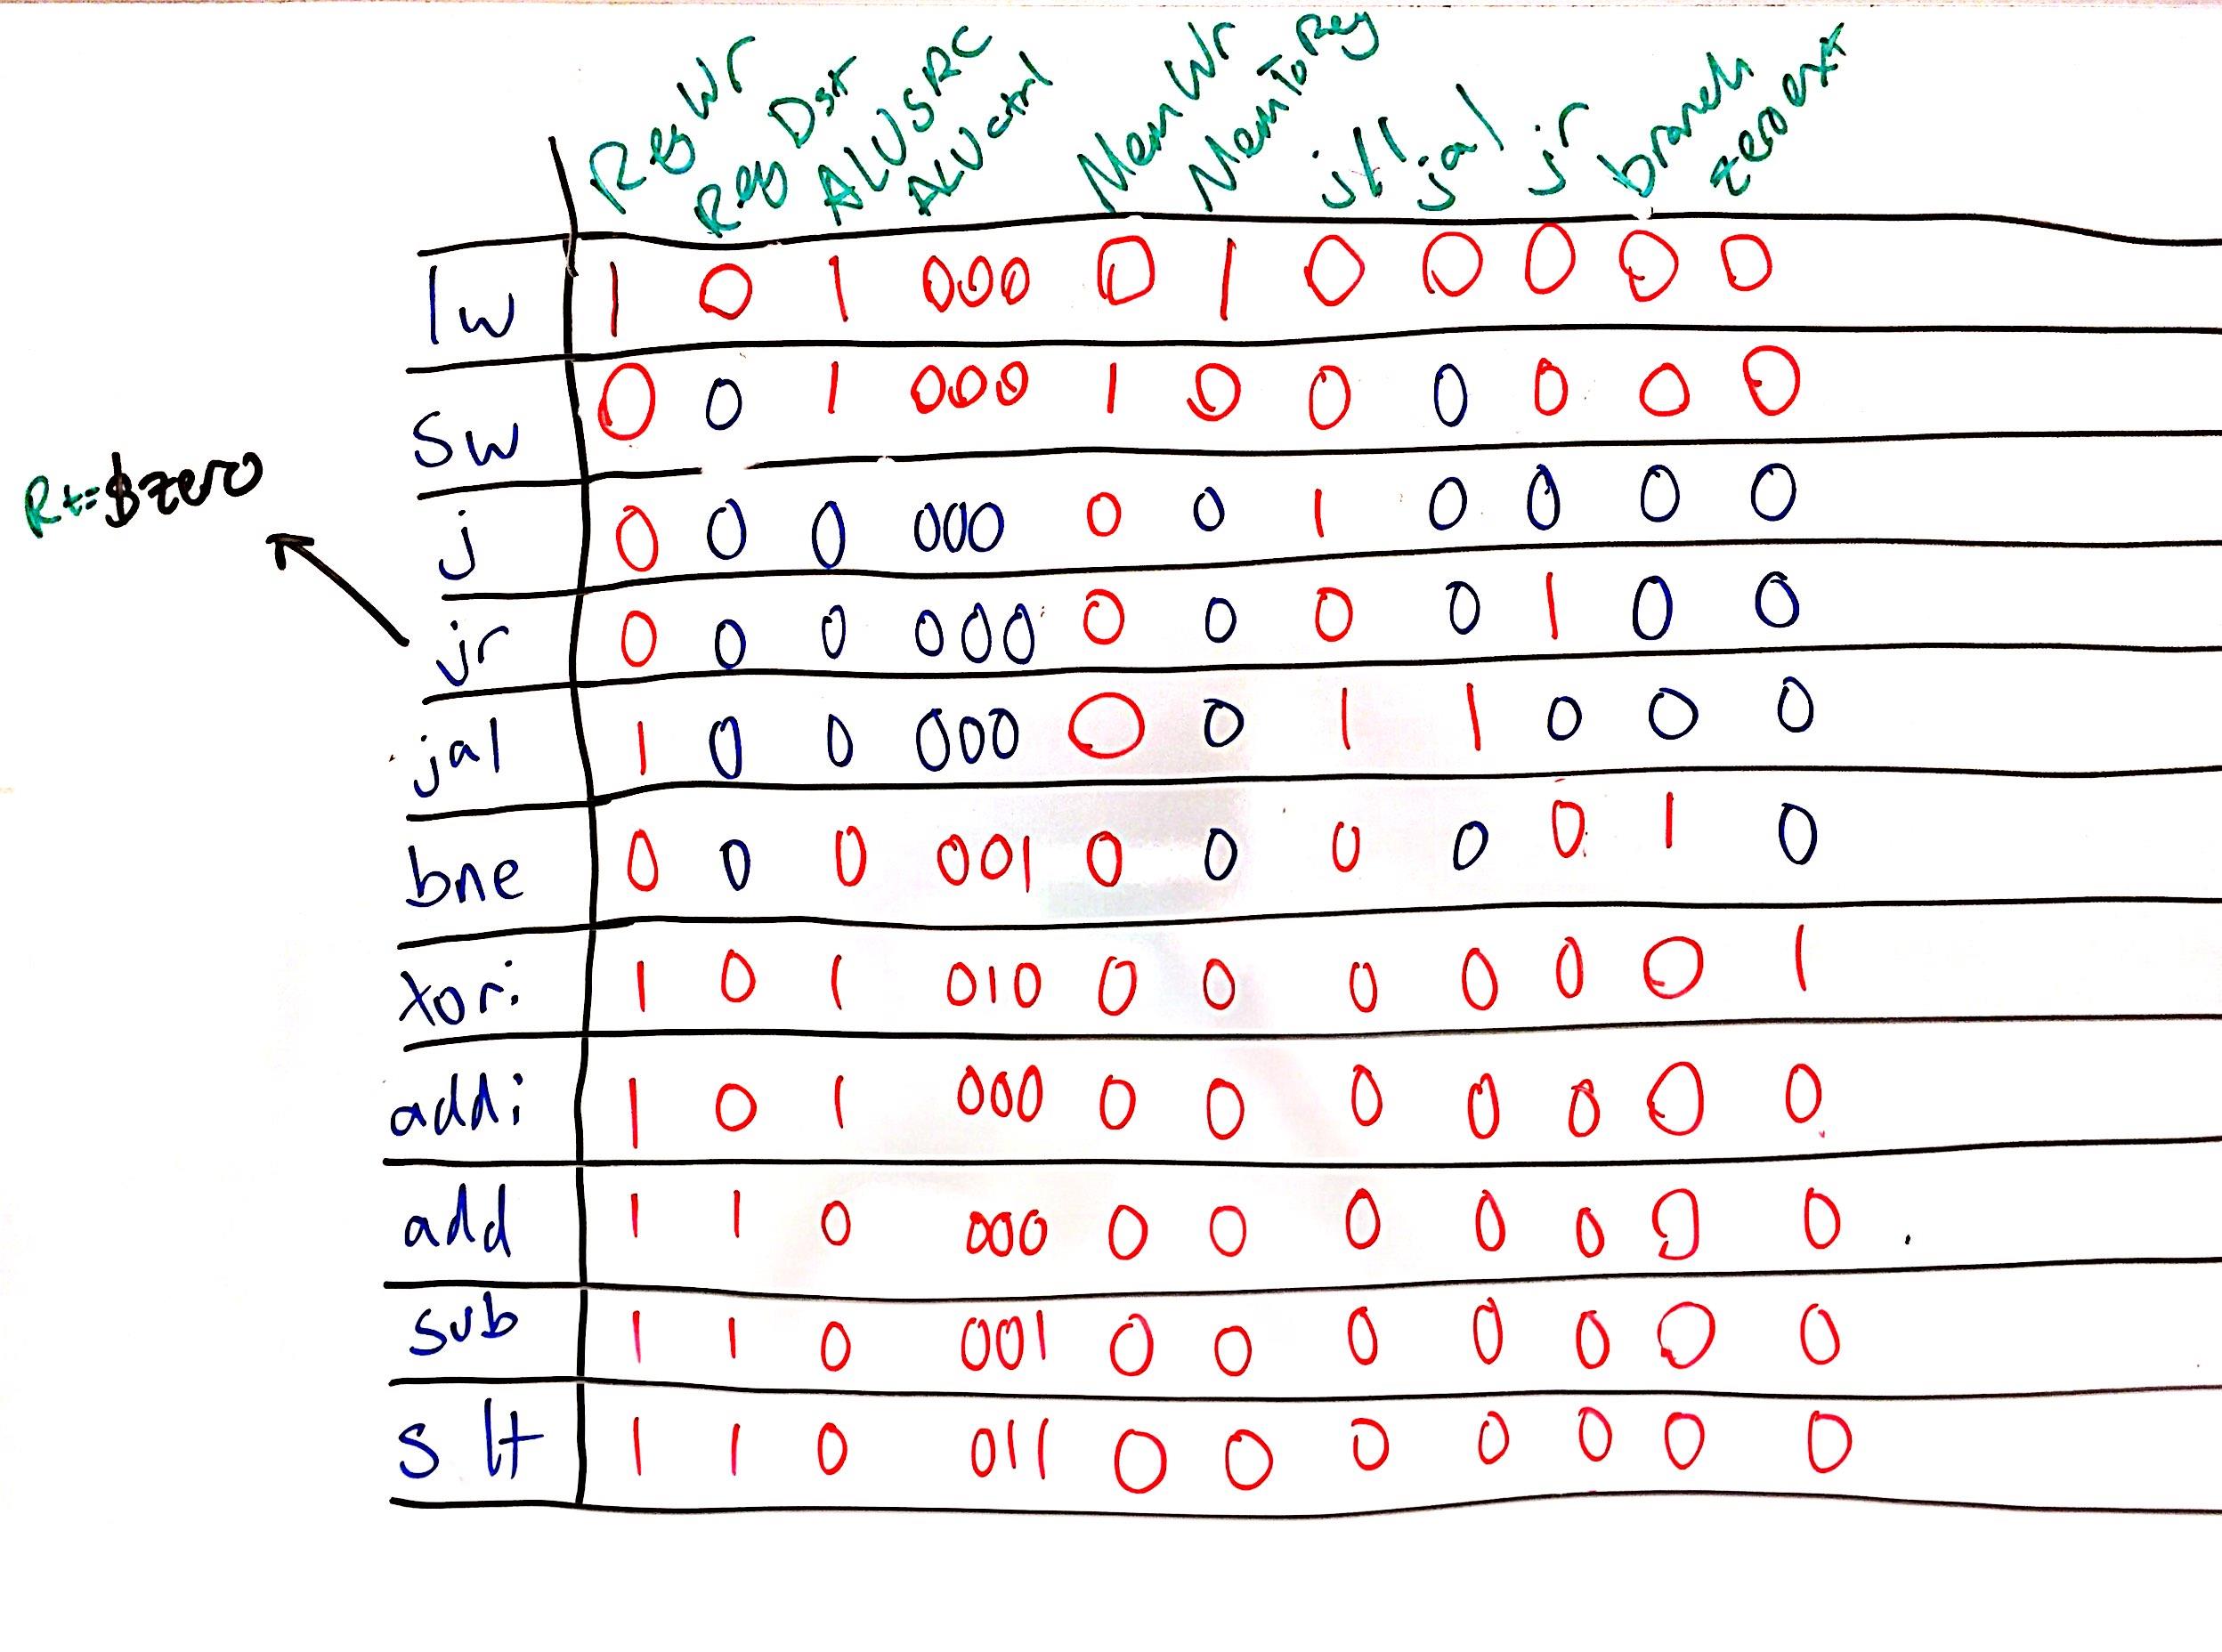 RegWr RegDst ALUSRC ALUctrl MemWr MemToReg jal jr branch zero ext
lw 1 0 1 000 0 1 0 0 0 0 0
sw 0 0 1 000 1 0 0 0 0 0 0
Rt=$zero
j 0 0 0 000 0 0 1 0 0 0 0
jr 0 0 0 000 0 0 0 0 1 0 0
jal 1 0 0 000 0 0 1 1 0 0 0
bne 0 0 0 001 0 0 0 0 0 1 0
xori 1 0 1 010 0 0 0 0 0 0 1
addi 1 0 1 000 0 0 0 0 0 0 0
add 1 1 0 000 0 0 0 0 0 0 0
sub 1 1 0 001 0 0 0 0 0 0 0
slt 1 1 0 011 0 0 0 0 0 0 0